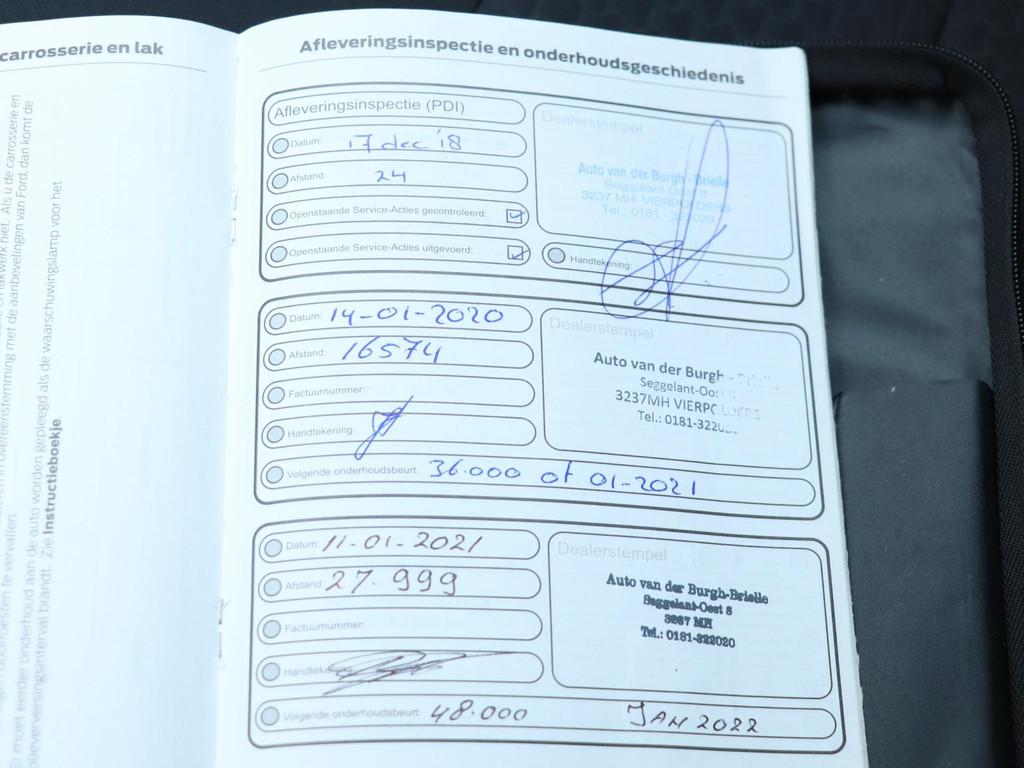 carrosserie en lak
en lakwerk niet. Als u de carrosserie en
in overeenstemming met de aanbevelingen van Ford, dan komt de
te vervallen.
Er moet eerder onderhoud aan de auto worden gepleegd als de waarschuwingslamp voor het
olieverversingsinterval brandt. Zie Instructieboekje.
Afleveringsinspectie en onderhoudsgeschiedenis
Afleveringsinspectie (PDI)
Datum: 17 dec '18
Afstand: 24
Openstaande Service-Acties gecontroleerd:
Openstaande Service-Acties uitgevoerd:
Dealerstempel
Auto van der Burgh - Brielle
Seggelant-Oost 8
3237 MH VIERPOLDERS
Tel.: 0181 - 322020
Handtekening:
Datum: 14-01-2020
Afstand: 16574
Factuurnummer:
Handtekening:
Volgende onderhoudsbeurt: 36.000 of 01-2021
Dealerstempel
Auto van der Burgh - Brielle
Seggelant-Oost
3237MH VIERPOLDERS
Tel.: 0181-322
Datum: 11-01-2021
Afstand: 27.999
Factuurnummer:
Handtekening:
Volgende onderhoudsbeurt: 48.000 JAN 2022
Dealerstempel
Auto van der Burgh-Brielle
Seggelant-Oost 8
3237 MH
Tel.: 0181-322020